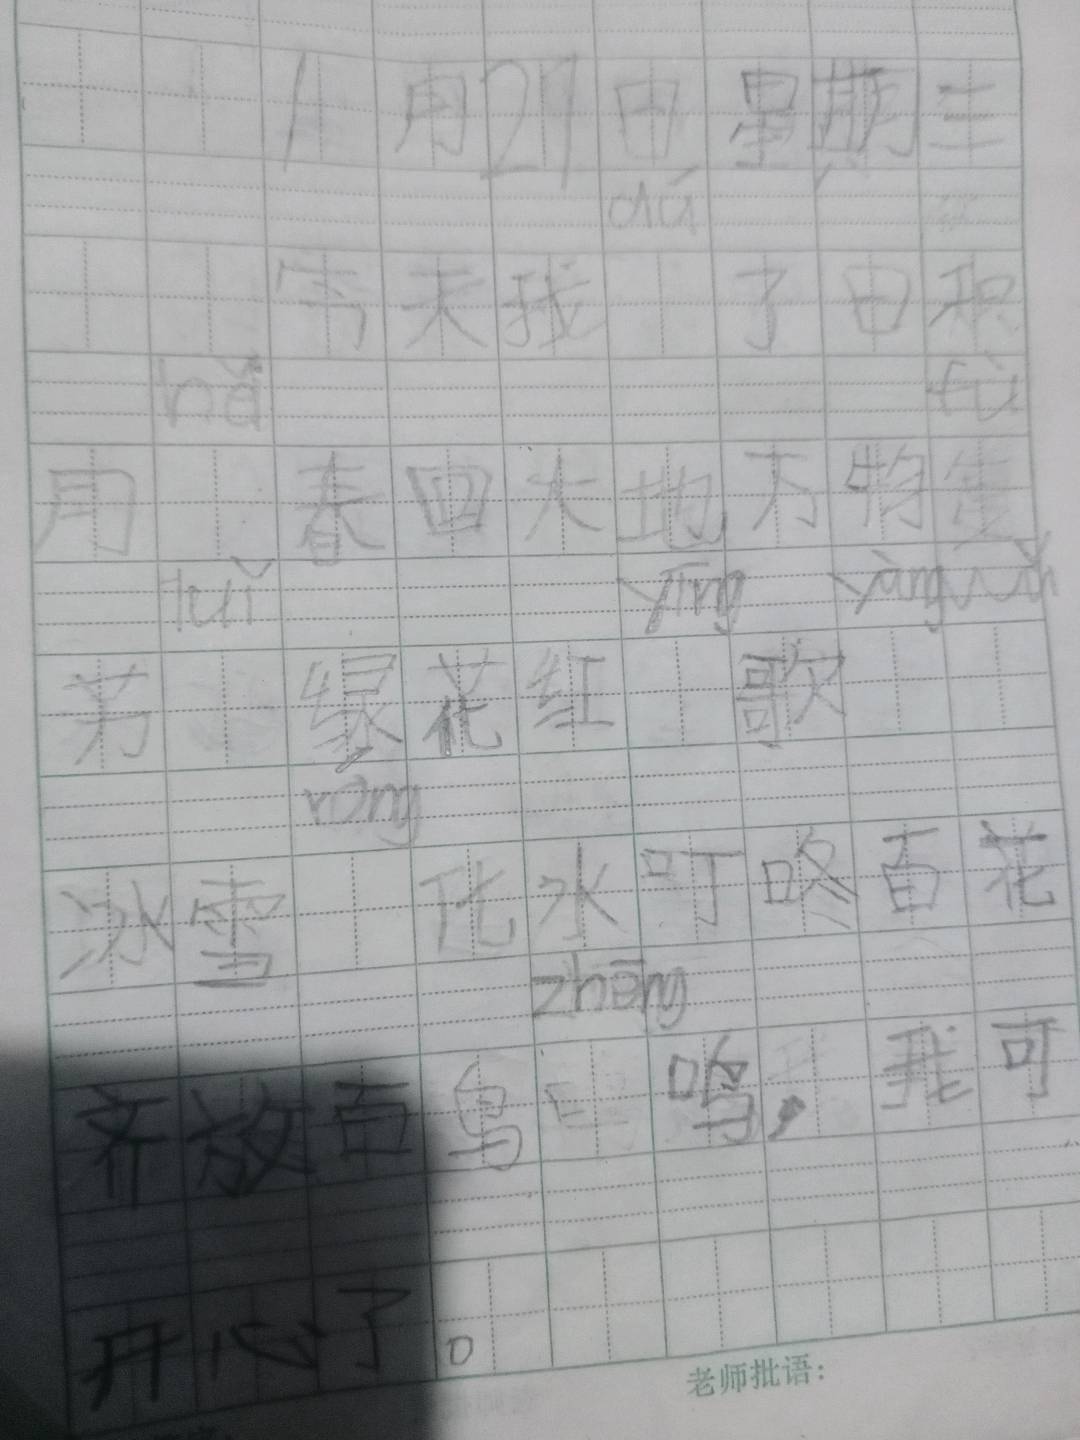 1月21日星期三
chú
今天我 了日积
nǎ fù
月 春回大地万物复
luǐ yīng yàng wǔ
芳 绿花红 歌
róng
冰雪 化水叮咚百花
zhēng
齐放百鸟 鸣，我可
开心了。
老师批语：